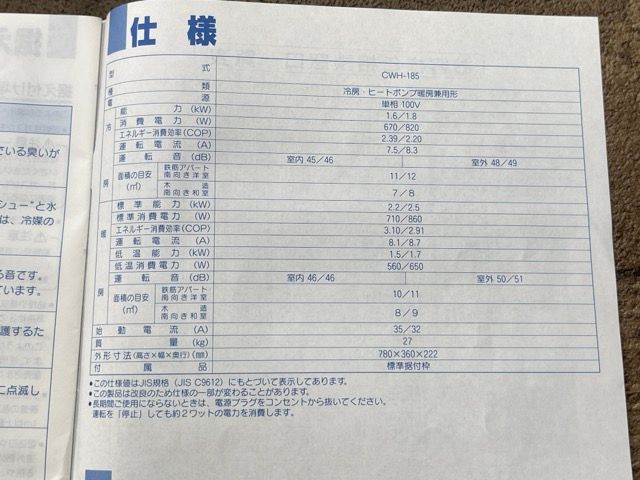 仕様
型式 CWH-185
種類 冷房・ヒートポンプ暖房兼用形
電源 単相100V
冷房
能力(kW) 1.6/1.8
消費電力(W) 670/820
エネルギー消費効率(COP) 2.39/2.20
運転電流(A) 7.5/8.3
運転音(dB) 室内45/46 室外48/49
面積の目安(㎡)
鉄筋アパート南向き洋室 11/12
木造南向き和室 7/8
暖房
標準能力(kW) 2.2/2.5
標準消費電力(W) 710/860
エネルギー消費効率(COP) 3.10/2.91
運転電流(A) 8.1/8.7
低温能力(kW) 1.5/1.7
低温消費電力(W) 560/650
運転音(dB) 室内46/46 室外50/51
面積の目安(㎡)
鉄筋アパート南向き洋室 10/11
木造南向き和室 8/9
始動電流(A) 35/32
質量(kg) 27
外形寸法(高さ×幅×奥行)(mm) 780×360×222
付属品 標準据付枠
•この仕様値はJIS規格(JIS C9612)にもとづいて表示してあります。
•この製品は改良のため仕様の一部が変わることがあります。
•長期間ご使用にならないときは、電源プラグをコンセントから抜いてください。
運転を"停止"しても約2ワットの電力を消費します。
ている臭いが
シュー"と水
は、冷媒の
る音です。
ています。
護するた
に点滅し